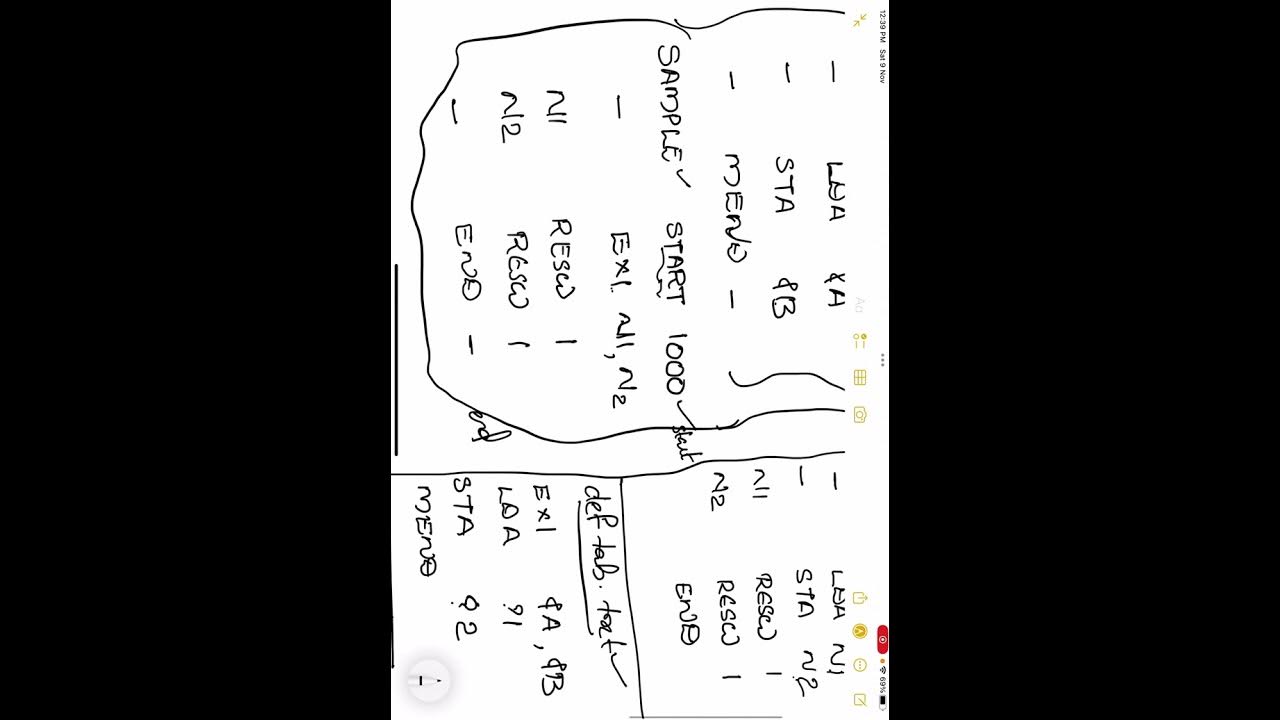 12:39 PM Sat 9 Nov
69%
- LDA &A
- STA &B
- MEND -
SAMPLE START 1000
- EX1 N1, N2
N1 RESW 1
N2 RESW 1
- END -
start
end
- LDA N1
- STA N2
N1 RESW 1
N2 RESW 1
END
def tab.txt
EX1 &A, &B
LDA ?1
STA ?2
MEND